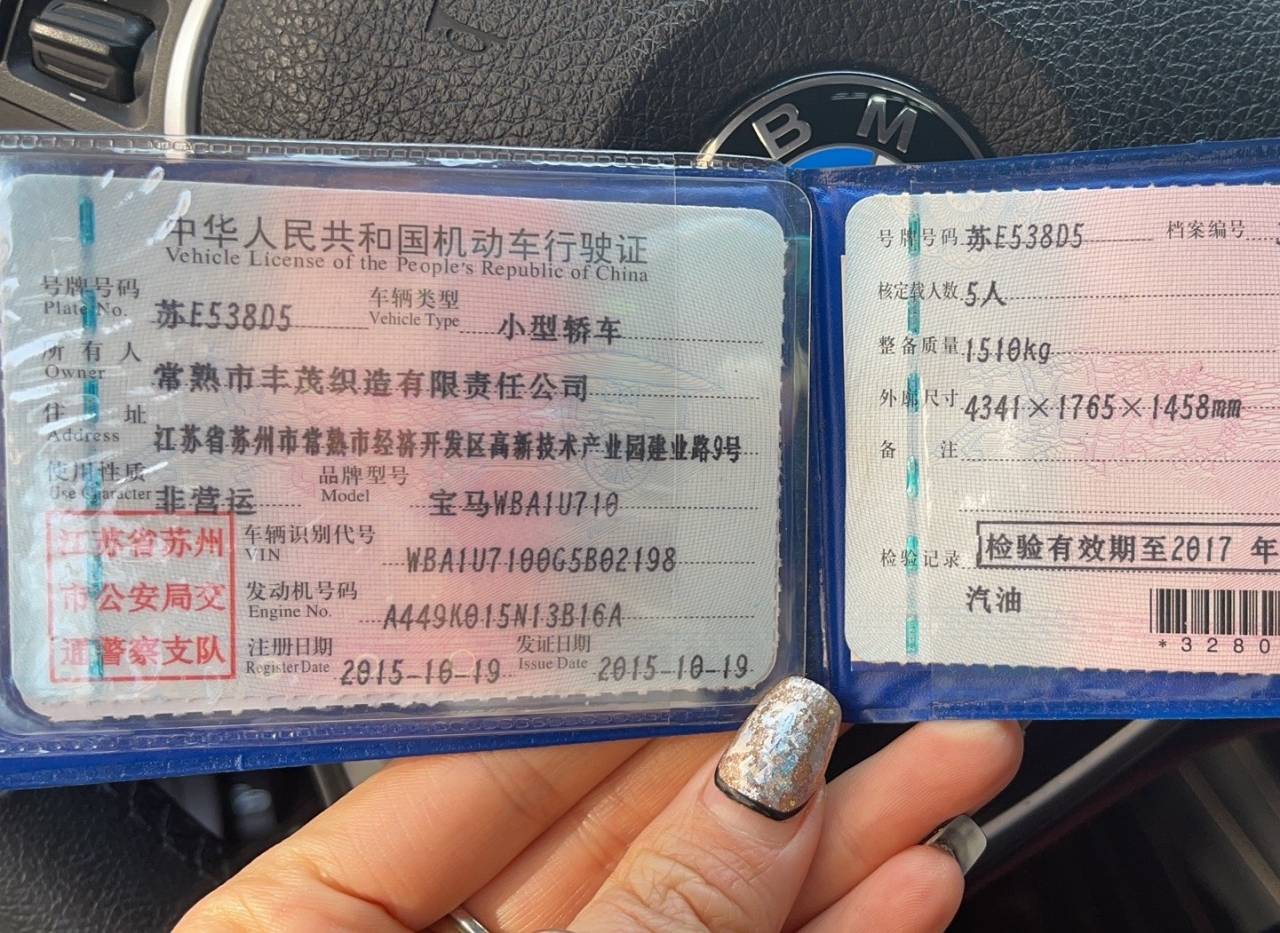 BM
中华人民共和国机动车行驶证
Vehicle License of the People's Republic of China
号牌号码 苏E538D5 车辆类型 小型轿车
Plate No. Vehicle Type
所有人 常熟市丰茂织造有限责任公司
Owner
住址 江苏省苏州市常熟市经济开发区高新技术产业园建业路9号
Address
使用性质 非营运 品牌型号 宝马WBA1U710
Use Character Model
江苏省苏州
市公安局交
通警察支队
车辆识别代号 WBA1U7100G5B02198
VIN
发动机号码 A449K015N13B16A
Engine No.
注册日期 2015-10-19 发证日期 2015-10-19
Register Date Issue Date
号牌号码 苏E538D5 档案编号
核定载人数 5人
整备质量 1510kg
外廓尺寸 4341×1765×1458mm
备注
检验记录 检验有效期至2017 年
汽油
*3280